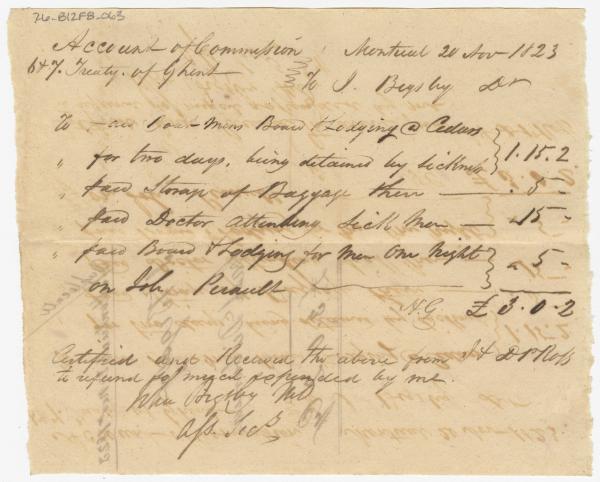 76-B12F8-063
Account of Commission Montreal 20 Nov 1823
6 & 7. Treaty of Ghent To J. Bigsby Dr
To paid Boat-Mens Board & Lodging @ Cedars
" for two days, being detained by sickness } 1.15.2
" paid Storage of Baggage there — 5 -
" paid Doctor attending Sick Men — 15 -
" paid Board & Lodging for Men One Night
on Isle Perault } " 5 -
£ 3.0.2
Certified and Received the above from Dr Ross
to refund so much expended by me.
Bigsby MD
Ass. Secy